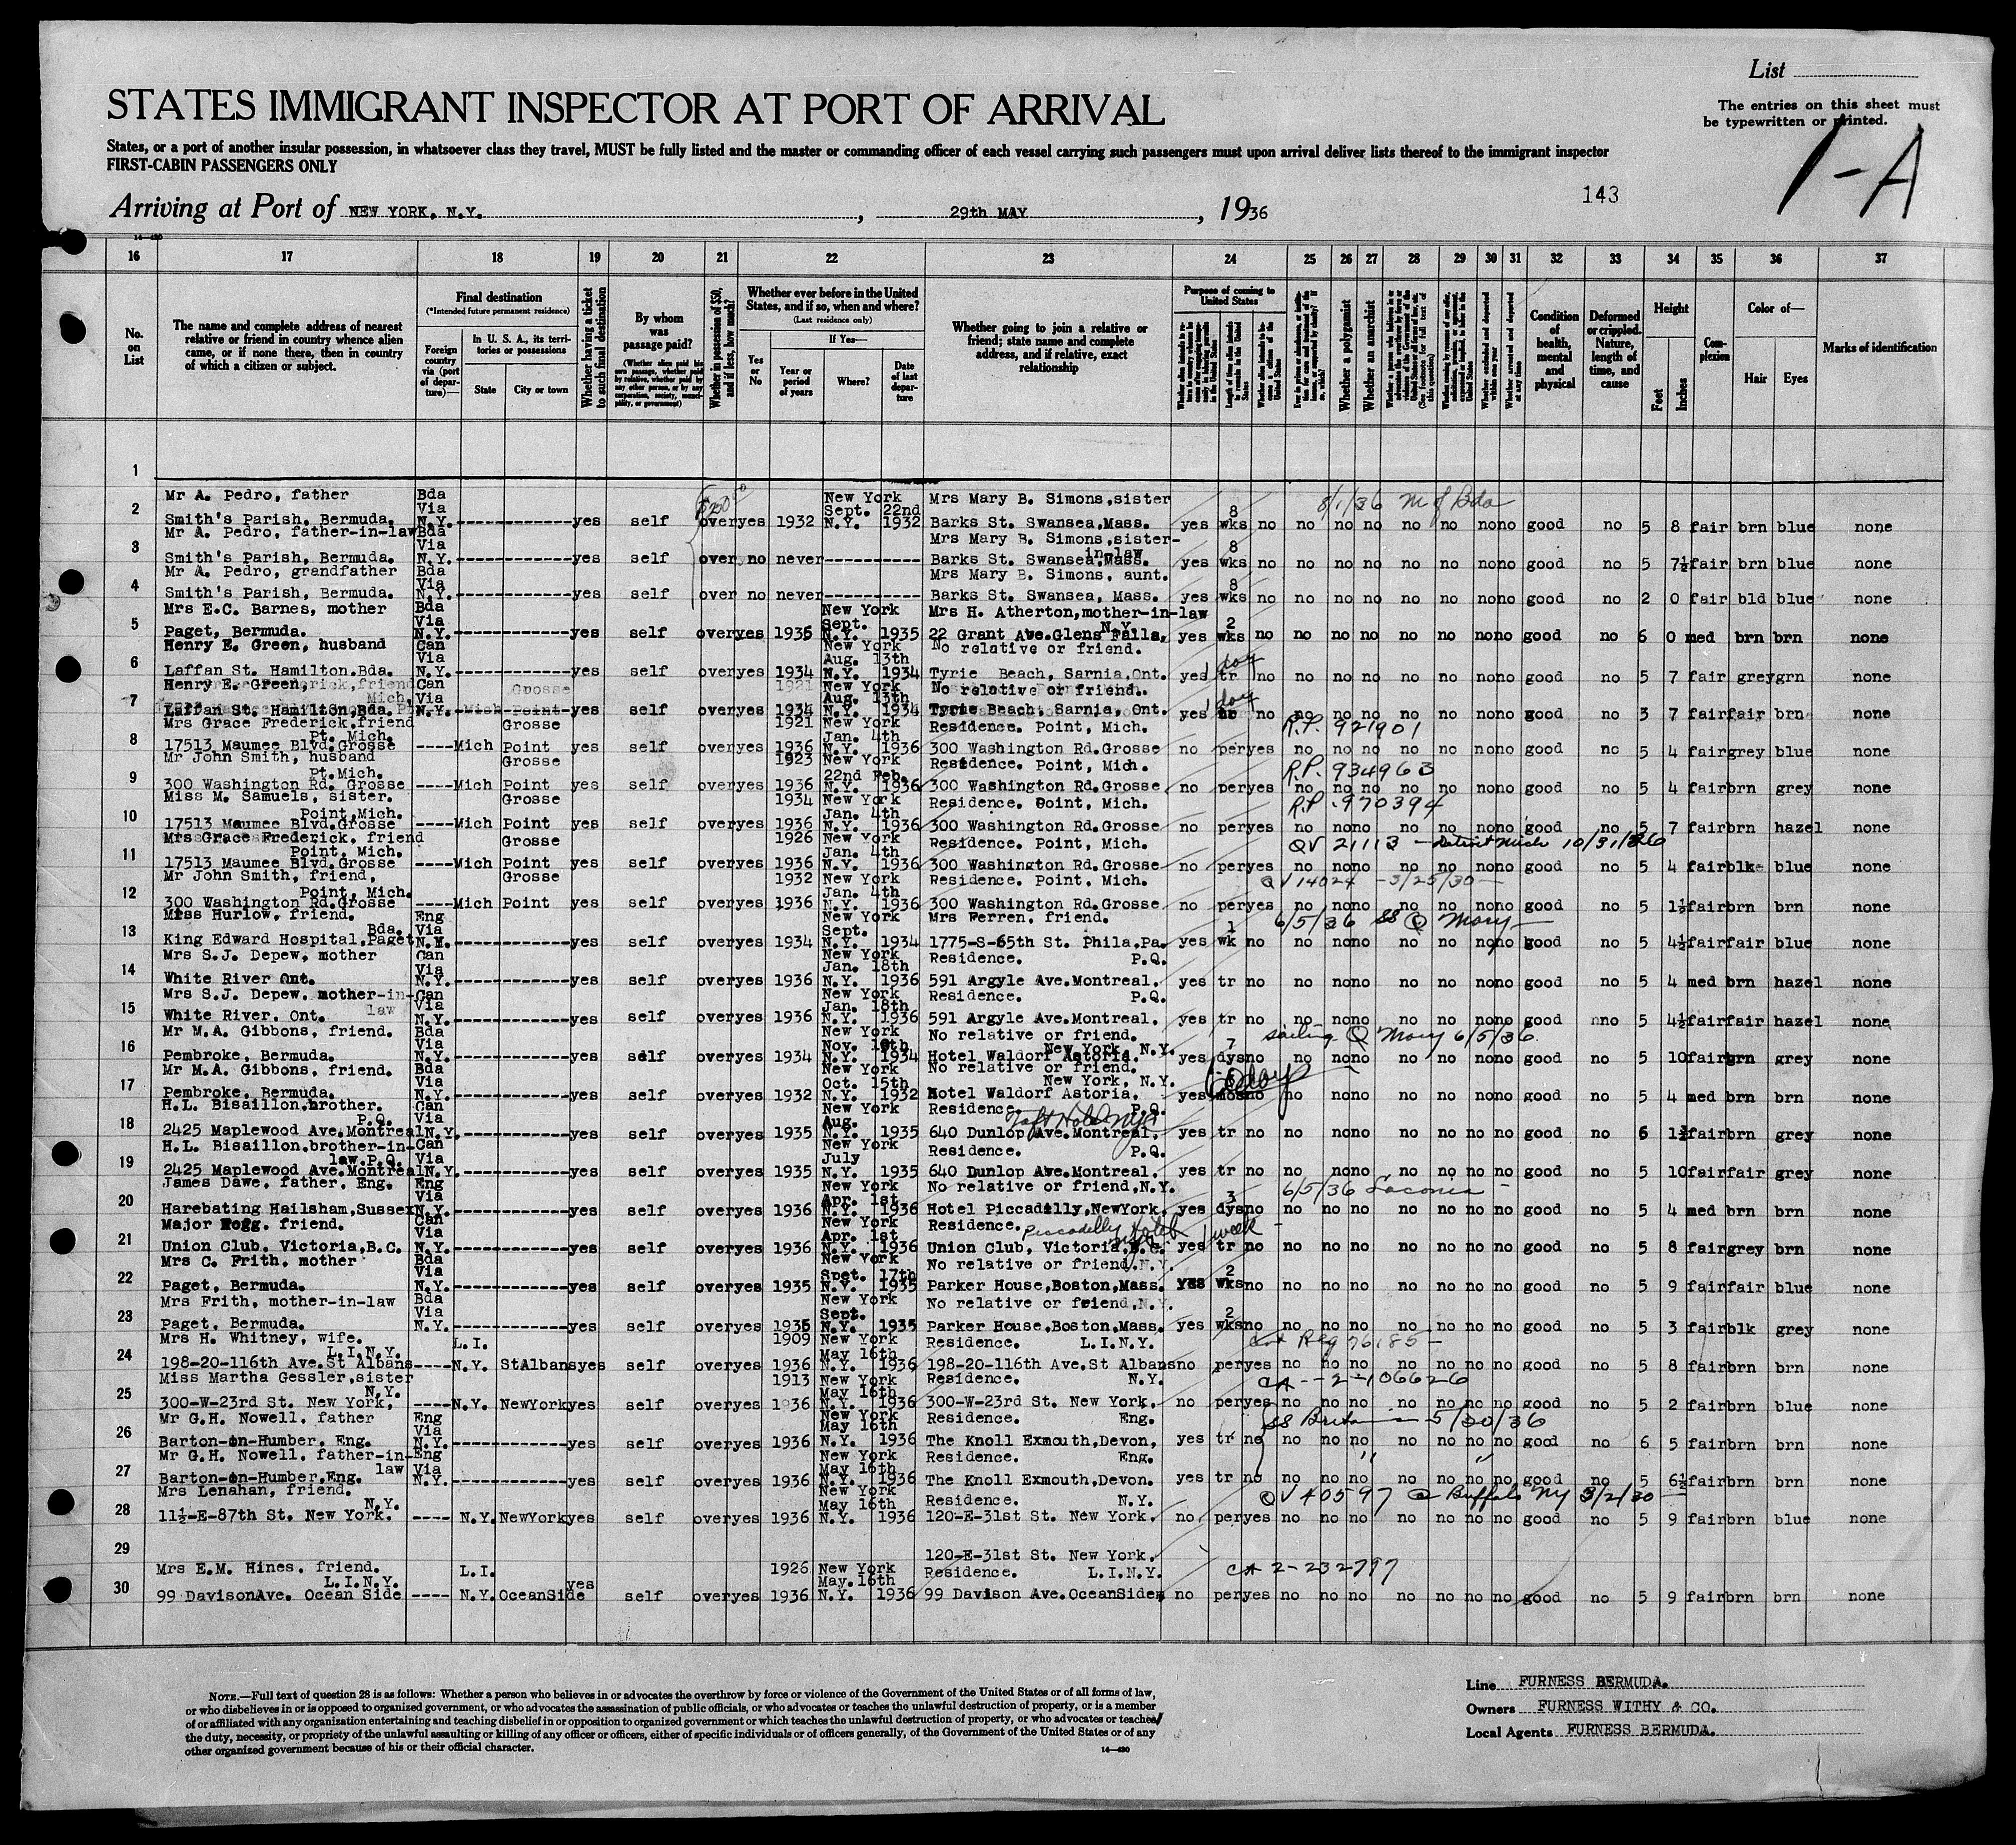 List
The entries on this sheet must
be typewritten or printed.
STATES IMMIGRANT INSPECTOR AT PORT OF ARRIVAL
1-A
States, or a port of another insular possession, in whatsoever class they travel, MUST be fully listed and the master or commanding officer of each vessel carrying such passengers must upon arrival deliver lists thereof to the immigrant inspector
FIRST-CABIN PASSENGERS ONLY
143
Arriving at Port of NEW YORK, N.Y. , 29th MAY , 1936
16 17 18 19 20 21 22 23 24 25 26 27 28 29 30 31 32 33 34 35 36 37
No. on List
The name and complete address of nearest relative or friend in country whence alien came, or if none there, then in country of which a citizen or subject.
Final destination
(*Intended future permanent residence)
Foreign country via (port of departure)—
In U. S. A., its territories or possessions
State
City or town
Whether having a ticket to such final destination
By whom was passage paid?
Whether in possession of $50, and if less, how much?
Whether ever before in the United States, and if so, when and where?
(Last residence only)
Yes or No
If Yes—
Year or period of years
Where?
Date of last departure
Whether going to join a relative or friend; state name and complete address, and if relative, exact relationship
Purpose of coming to United States
Whether a polygamist
Whether an anarchist
Condition of health, mental and physical
Deformed or crippled. Nature, length of time, and cause
Height
Feet
Inches
Complexion
Color of—
Hair
Eyes
Marks of identification
1
Mr A. Pedro, father Bda New York Mrs Mary B. Simons,sister 8/1/36 M of Bda
2 Via Sept. 22nd 8
Smith's Parish, Bermuda. N.Y. yes self over yes 1932 N.Y. 1932 Barks St. Swansea,Mass. yes wks no no no no no no no no good no 5 8 fair brn blue none
Mr A. Pedro, father-in-law Bda Mrs Mary B. Simons,sister-
3 Via in-law 8
Smith's Parish, Bermuda. N.Y. yes self over no never Barks St. Swansea,Mass. yes wks no no no no no no no no good no 5 7½ fair brn blue none
Mr A. Pedro, grandfather Bda Mrs Mary B. Simons, aunt.
4 Via 8
Smith's Parish, Bermuda. N.Y. yes self over no never Barks St. Swansea, Mass. yes wks no no no no no no no no good no 2 0 fair bld blue none
Mrs E.C. Barnes, mother Bda New York Mrs H. Atherton,mother-in-law
5 Via Sept. N.Y. 2
Paget, Bermuda. N.Y. yes self over yes 1935 N.Y. 1935 22 Grant Ave.Glens Falls, yes wks no no no no no no no no good no 6 0 med brn brn none
Henry E. Green, husband Can New York No relative or friend.
6 Via Aug. 13th 1 day
Laffan St. Hamilton,Bda. N.Y. yes self over yes 1934 N.Y. 1934 Tyrie Beach, Sarnia,Ont. yes tr no no no no no no no no good no 5 7 fair grey grn none
Henry E. Green, Can New York No relative or friend.
7 Via Aug. 13th 1 day
Laffan St. Hamilton,Bda. N.Y. yes self over yes 1934 N.Y. 1934 Tyrie Beach, Sarnia, Ont. yes no no no no no no no no good no 3 7 fair fair brn none
Mrs Grace Frederick,friend Grosse 1921 New York Residence. Point, Mich. R.P. 921901
8 Pt. Mich. Jan. 4th
17513 Maumee Blvd.Grosse Mich Point yes self over yes 1936 N.Y. 1936 300 Washington Rd.Grosse no per yes no no no no no no no good no 5 4 fair grey blue none
Mr John Smith, husband Grosse 1923 New York Residence. Point, Mich.
9 Pt.Mich. 22nd Feb. R.P. 934963
300 Washington Rd. Grosse Mich Point yes self over yes 1936 N.Y. 1936 300 Washington Rd.Grosse no per yes no no no no no no no good no 5 4 fair brn grey none
Miss M. Samuels, sister. Grosse 1934 New York Residence. Point, Mich. R.P. 970394
10 Point,Mich. Jan. 4th
17513 Maumee Blvd.Grosse Mich Point yes self over yes 1936 N.Y. 1936 300 Washington Rd.Grosse no per yes no no no no no no no good no 5 7 fair brn hazel none
Mrs Grace Frederick, friend Grosse 1926 New York Residence. Point, Mich. QV 21113 - Detroit Mich
11 Point, Mich. Jan. 4th
17513 Maumee Blvd.Grosse Mich Point yes self over yes 1936 N.Y. 1936 300 Washington Rd.Grosse no per yes no no no no no no no good no 5 4 fair blk blue none
Mr John Smith, friend, Grosse 1932 New York Residence. Point, Mich. QV 14024 - 3/25/30
12 Point, Mich. Jan. 4th
300 Washington Rd.Grosse Mich Point yes self over yes 1936 N.Y. 1936 300 Washington Rd.Grosse no per yes no no no no no no no good no 5 1½ fair brn brn none
Miss Hurlow, friend. Eng New York Mrs Ferren, friend. 6/5/36 SS Q Mary
13 Bda. Via Sept. 1
King Edward Hospital,Paget N.M. yes self over yes 1934 N.Y. 1934 1775-S-65th St. Phila,Pa. yes wk no no no no no no no no good no 5 4½ fair fair blue none
Mrs S.J. Depew, mother Can New York Residence. P.Q.
14 Via Jan. 18th
White River Ont. N.Y. yes self over yes 1936 N.Y. 1936 591 Argyle Ave.Montreal. yes tr no no no no no no no no good no 5 4 med brn hazel none
Mrs S.J. Depew, mother-in- Can New York Residence. P.Q.
15 law Via Jan. 18th
White River. Ont. N.Y. yes self over yes 1936 N.Y. 1936 591 Argyle Ave.Montreal. yes tr no no no no no no no no good no 5 4½ fair fair hazel none
Mr M.A. Gibbons, friend. Bda New York No relative or friend. sailing Q Mary 6/5/36
16 Via Nov. New York, N.Y. 7
Pembroke, Bermuda. N.Y. yes self over yes 1934 N.Y. 1934 Hotel Waldorf Astoria. yes dys no no no no no no no no good no 5 10 fair brn grey none
Mr M.A. Gibbons, friend. Bda New York No relative or friend.
17 Via Oct. 15th New York, N.Y. 60 days
Pembroke, Bermuda. N.Y. yes self over yes 1932 N.Y. 1932 Hotel Waldorf Astoria, yes mos no no no no no no no no good no 5 4 med brn brn none
H.L. Bisaillon,brother. Can New York Residence. P.Q.
18 P.Q. Via Aug. Taft Hotel NYC
2425 Maplewood Ave.Montreal N.Y. yes self over yes 1935 N.Y. 1935 640 Dunlop Ave.Montreal. yes tr no no no no no no no no good no 6 fair brn grey none
H.L. Bisaillon,brother-in- Can New York Residence. P.Q.
19 law.P.Q. Via July
2425 Maplewood Ave.Montreal N.Y. yes self over yes 1935 N.Y. 1935 640 Dunlop Ave.Montreal. yes tr no no no no no no no no good no 5 10 fair fair grey none
James Dawe, father, Eng. Eng New York No relative or friend,N.Y. 6/5/36 Laconia
20 Via Apr. 1st 3
Harebating Hailsham,Sussex N.Y. yes self over yes 1936 N.Y. 1936 Hotel Piccadilly,NewYork. yes dys no no no no no no no no good no 5 4 med brn brn none
Major friend. Can New York Residence. Piccadilly Hotel 1 week
21 Via Apr. 1st
Union Club. Victoria,B.C. N.Y. yes self over yes 1936 N.Y. 1936 Union Club, Victoria,B.C. yes tr no no no no no no no no good no 5 8 fair grey brn none
Mrs C. Frith, mother Bda New York No relative or friend.N.Y.
22 Via Spet. 17th 2
Paget, Bermuda. N.Y. yes self over yes 1935 N.Y. 1935 Parker House,Boston,Mass. yes wks no no no no no no no no good no 5 9 fair fair blue none
Mrs Frith, mother-in-law Bda New York No relative or friend,N.Y.
23 Via Sept. 2
Paget, Bermuda. N.Y. yes self over yes 1935 N.Y. 1935 Parker House,Boston,Mass. yes wks no no no no no no no no good no 5 3 fair blk grey none
Mrs H. Whitney, wife. L.I. 1909 New York Residence. L.I.N.Y. Reg 76185
24 L.I.N.Y. May 16th
198-20-116th Ave.St Albans N.Y. StAlbans yes self over yes 1936 N.Y. 1936 198-20-116th Ave.St Albans no per yes no no no no no no no good no 5 8 fair brn brn none
Miss Martha Gessler,sister 1913 New York Residence. N.Y. CA - 2 - 106626
25 N.Y. May 16th
300-W-23rd St. New York, N.Y. NewYork yes self over yes 1936 N.Y. 1936 300-W-23rd St. New York. no per yes no no no no no no no good no 5 2 fair brn blue none
Mr G.H. Nowell, father Eng New York Residence. Eng. 5/30/36
26 Via May 16th
Barton-on-Humber, Eng. N.Y. yes self over yes 1936 N.Y. 1936 The Knoll Exmouth,Devon, yes tr no no no no no no no no good no 6 5 fair brn brn none
Mr G.H. Nowell, father-in- Eng New York Residence. Eng. " "
27 law Via May 16th
Barton-on-Humber,Eng. N.Y. yes self over yes 1936 N.Y. 1936 The Knoll Exmouth,Devon. yes tr no no no no no no no no good no 5 6½ fair brn brn none
Mrs Lenahan, friend. New York Residence. N.Y. QV 40597 Buffalo NY 3/2/30
28 N.Y. May 16th
11½-E-87th St. New York. N.Y. NewYork yes self over yes 1936 N.Y. 1936 120-E-31st St. New York. no per yes no no no no no no no good no 5 9 fair brn blue none
29 120-E-31st St. New York.
Mrs E.M. Hines, friend. L.I. 1926 New York Residence. L.I.N.Y. CA 2-232797
30 L.I.N.Y. May.16th
99 DavisonAve. Ocean Side N.Y. OceanSide yes self over yes 1936 N.Y. 1936 99 Davison Ave.OceanSide, no per yes no no no no no no no good no 5 9 fair brn brn none
NOTE.—Full text of question 28 is as follows: Whether a person who believes in or advocates the overthrow by force or violence of the Government of the United States or of all forms of law,
or who disbelieves in or is opposed to organized government, or who advocates the assassination of public officials, or who advocates or teaches the unlawful destruction of property, or is a member
of or affiliated with any organization entertaining and teaching disbelief in or opposition to organized government or which teaches the unlawful destruction of property, or who advocates or teaches
the duty, necessity, or propriety of the unlawful assaulting or killing of any officer or officers, either of specific individuals or of officers generally, of the Government of the United States or of any
other organized government because of his or their official character.
14—430
Line FURNESS BERMUDA.
Owners FURNESS WITHY & CO.
Local Agents FURNESS BERMUDA.